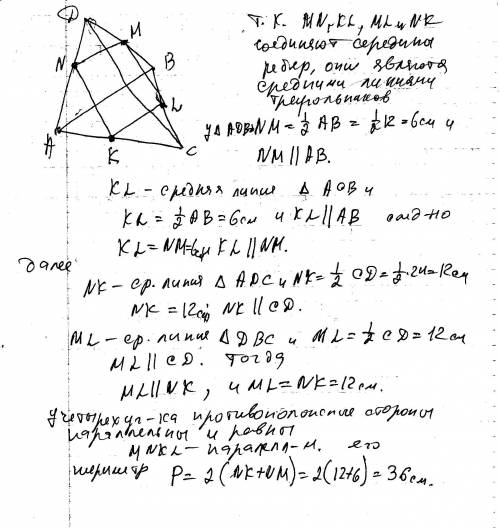 D
M
N
B
L
A
K
C
Т.к. MN, KL, ML и NK
соединяют середины
ребер, они являются
средними линиями
треугольников
у △ADB NM = 1/2 AB = 1/2 12 = 6см и
NM || AB.
KL – средняя линия △ ACB и
KL = 1/2 AB = 6см и KL || AB след-но
KL = NM = 6см KL || NM.
далее
NK – ср. линия △ ADC и NK = 1/2 CD = 1/2 · 24 = 12см
NK = 12см, NK || CD.
ML – ср. линия △ DBC и ML = 1/2 CD = 12см
ML || CD. Тогда
ML || NK, и ML = NK = 12см.
у четырехуг-ка противоположные стороны
параллельны и равны
MNKL – паралел-м. его
периметр P = 2(NK + NM) = 2(12+6) = 36см.